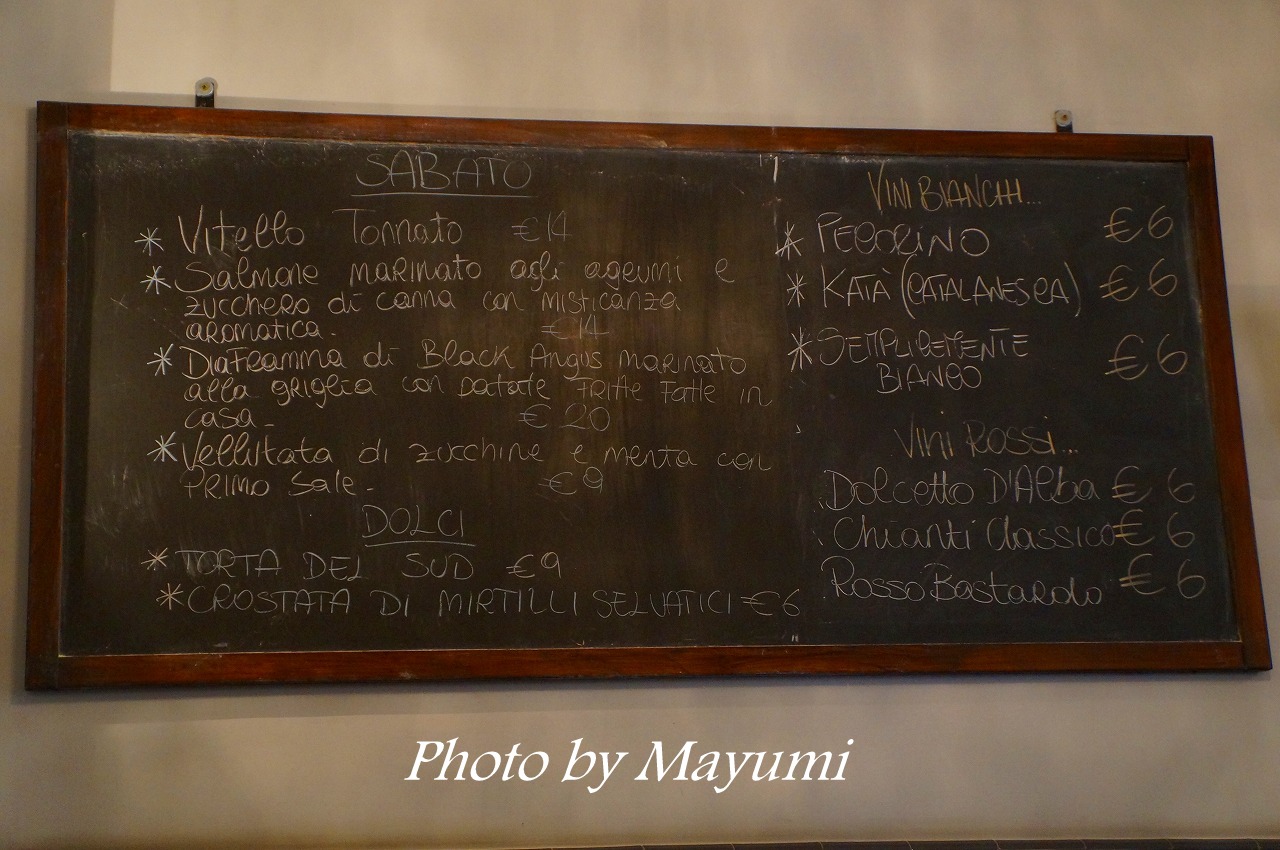 SABATO
* Vitello Tonnato €14
* Salmone marinato agli agrumi e
zucchero di canna con misticanza
aromatica. €14
* Diaframma di Black Angus marinato
alla griglia con patate fritte fatte in
casa. €20
* Vellutata di zucchine e menta con
PRIMO Sale. €9
DOLCI
* TORTA DEL SUD €9
* CROSTATA DI MIRTILLI SELVATICI €6
VINI BIANCHI...
* PECORINO €6
* KATÀ (CATALANESCA) €6
* SEMPLICEMENTE
BIANCO €6
Vini Rossi...
Dolcetto D'Alba €6
Chianti Classico €6
Rosso Bastardo €6
Photo by Mayumi